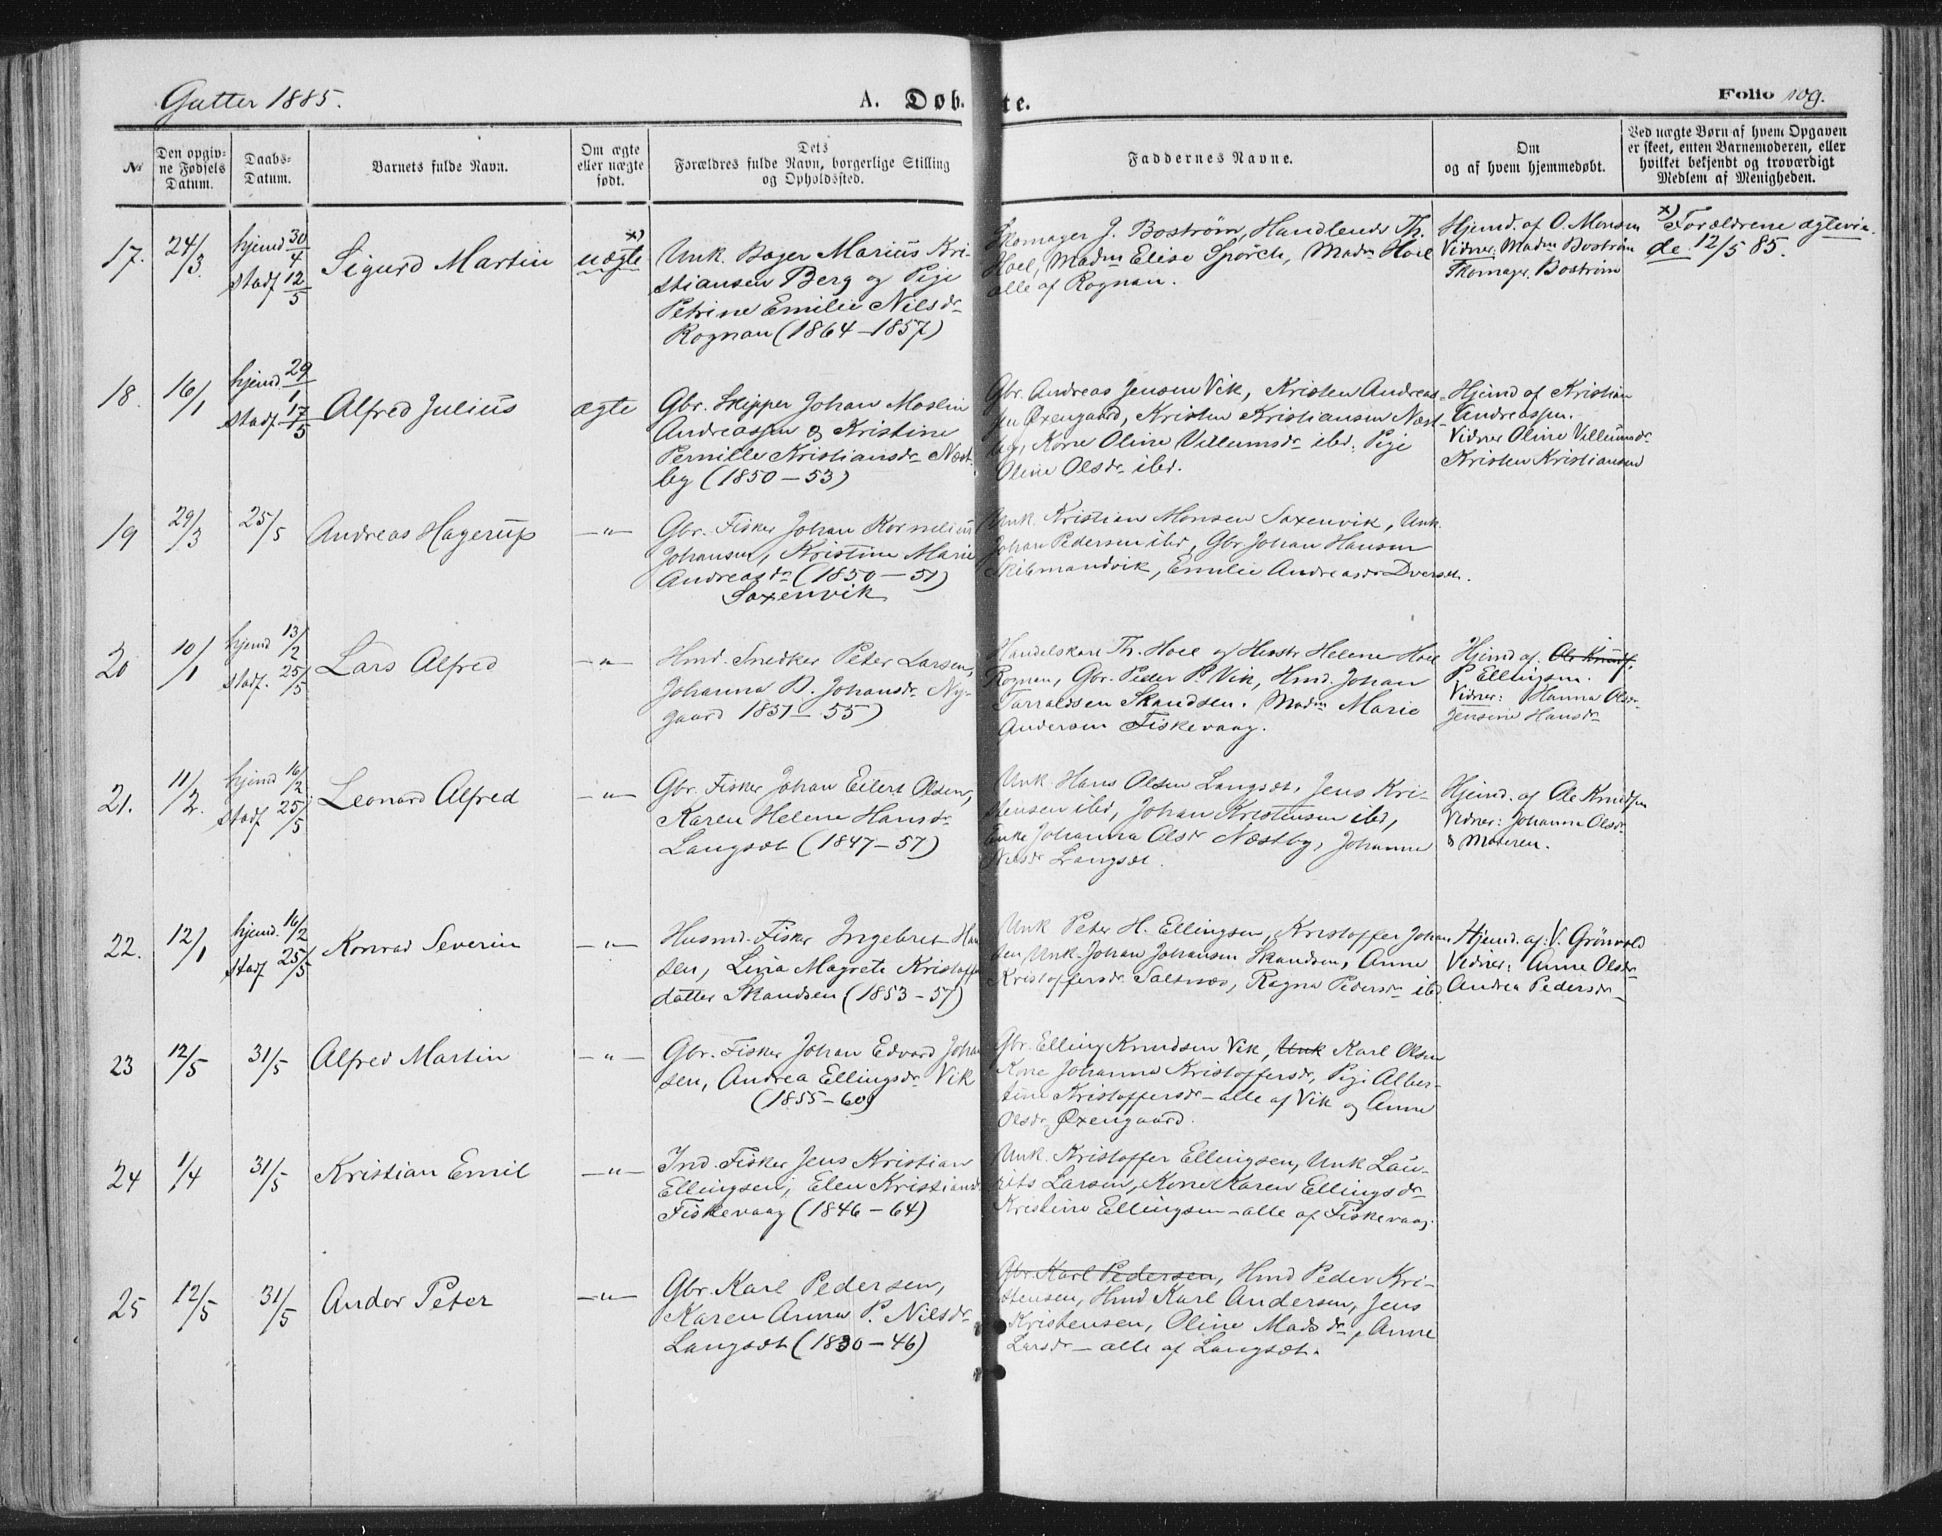 Gutter 1885.
A. Døbte.
Folio 109.
№
Den opgivne Fødsels Datum.
Daabs-Datum.
Barnets fulde Navn.
Om ægte eller uægte født.
Dets Forældres fulde Navn, borgerlige Stilling og Opholdssted.
Faddernes Navne.
Om og af hvem hjemmedøbt.
Ved uægte Børn af hvem Opgaven er skeet, enten Barnemoderen, eller hvilket bekjendt og troværdigt Medlem af Menigheden.
17.
24/3
hjemd 30/4
stadf 12/5
Sigurd Martin
x)
uægte
Unk. Bager Marius Kri-
stiansen Berg og Pige
Petrine Emilie Nilsdr
Rognan (1864-1857)
Skomager J. Boström, Handlende Th.
Hoel, Madm Elise Spörch, Madm Hoel
alle af Rognan.
Hjemd. af O. Monsen
Vidner. Madm Boström
Skomager. Boström
x) Forældrene ægtevie-
de 12/5 85.
18.
16/1
hjemd 29/1
stadf. 17/5
Alfred Julius
ægte
Gbr. Skipper Johan Moslin
Andreassen & Kristine
Pernille Kristiansdr Næst-
by (1850-53)
Gbr. Andreas Jensen Vik, Kristen Andreas-
sen Øxengaard, Kristen Kristiansen Næst-
by, Kone Oline Villumsdr ibd, Pige
Oline Olsdr ibd.
Hjemd af Kristian
Andreassen.
Vidner Oline Villumsdr
Kristen Kristiansen
19
29/3
25/5
Andreas Hagerup
-"-
Gbr. Fisker Johan Kornelius
Johansen, Kristine Marie
Andreasdr (1850-51)
Saxenvik
Unk. Kristian Monsen Saxenvik, Unk.
Johan Pedersen ibd, Gbr Johan Hansen
Skibmandvik, Emilie Andreasdr Dverset.
20
10/1
hjemd 13/2
stadf. 25/5
Lars Alfred
-"-
Hmd. Snedker Peter Larsen,
Johanna B. Johansdr Ny-
gaard 1851-55)
Handelskarl Th. Hoel og Hustr Helene Hoel
Rognan, Gbr. Peder P. Vik, Hmd. Johan
Tarraldsen Skandsen. Madm Marie
Andersen Fiskevaag.
Hjemd af. Ole Knuds.
P Ellingsen.
Vidner: Hanna Olsdr
Jensine Hansdr
21.
11/2.
hjemd 16/2
stadf 25/5
Leonard Alfred
-"-
Gbr. Fisker Johan Eilert Olsen,
Karen Helene Hansdr
Langset (1847-57)
Unk. Hans Olsen Langset, Jens Kri-
stensen ibd, Johan Kristensen ibd,
Enke Johanna Olsdr Næstby, Johanne
Nilsdr Langset.
Hjemd. af Ole Knudsen
Vidner: Johanna Olsdr
& Moderen.
22.
12/1
hjemd. 16/2
stadf 25/5
Konrad Severin
-"-
Husmd. Fisker Ingebret Han
sen, Lina Magrete Kristoffer
datter Skandsen (1853-57)
Unk Peter H. Ellingsen, Kristoffer Johan
sen, Unk. Johan Johansen Skandsen, Anne
Kristoffersdr Saltnes, Ragna Pedersdr ibd.
Hjemd. af: V. Grönvold
Vidner: Anne Olsdr
Andrea Pedersdr
23
12/5
31/5
Alfred Martin
-"-
Gbr. Fisker Johan Edvard Johan
sen, Andrea Ellingsdr Vik
(1855-60)
Gbr. Elling Knudsen Vik, Unk Karl Olsen
Kone Johanna Kristoffersdr, Pige Alber-
tine Kristoffersdr - alle af Vik og Anne
Olsdr, Øxengaard.
24
1/4
31/5
Kristian Emil
-"-
Ind. Fisker Jens Kristian
Ellingsen, Elen Kristiansd
Fiskevaag (1846-64)
Unk. Kristoffer Ellingsen, Unk Lau-
rits Larsen, Kone Karen Ellingsdr
Kristine Ellingsen - alle af Fiskevaag.
25
12/5
31/5
Andor Peter
-"-
Gbr. Karl Pedersen,
Karen Anna P. Nilsdr
Langset (1830-46)
Gbr Karl Pedersen, Hmd Peder Kri-
stensen, Hmd Karl Andersen, Jens
Kristensen, Oline Madsdr, Anne
Larsdr - alle af Langset.